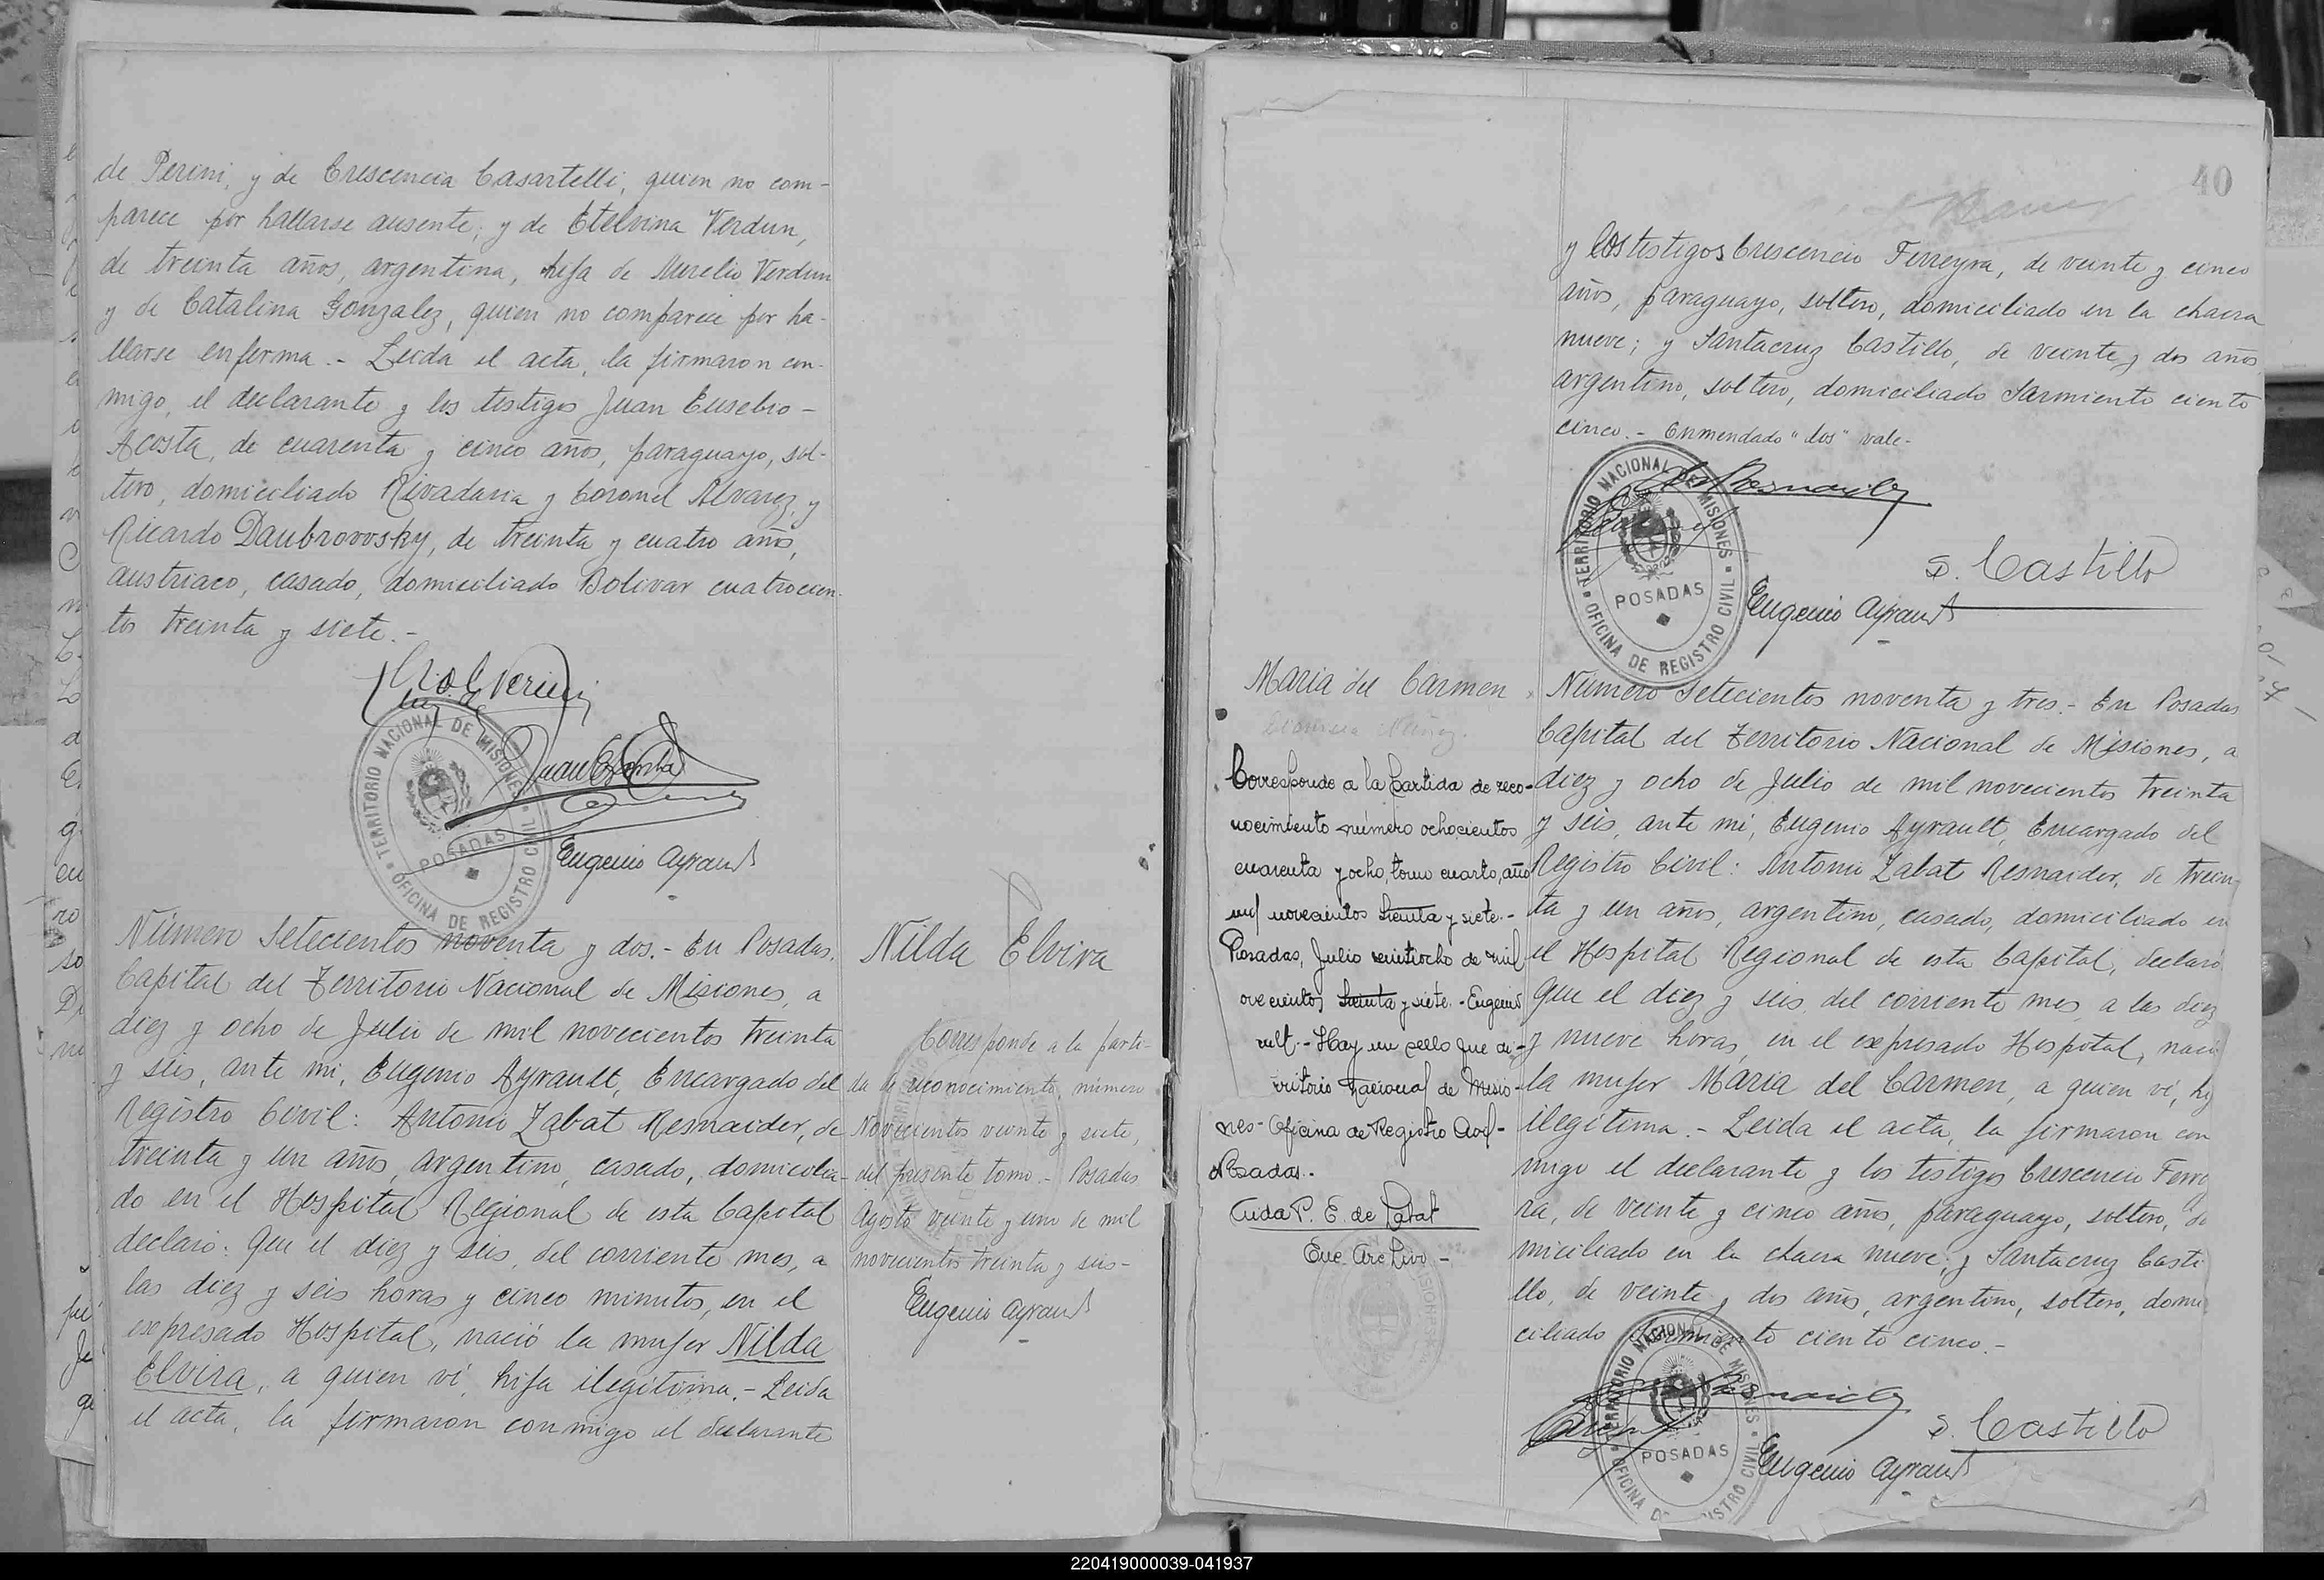 de Perini, y de Crescencia Casartelli, quien no com-
parece por hallarse ausente; y de Etelvina Verdun,
de treinta años, argentina, hija de Aurelio Verdun
y de Catalina Gonzalez, quien no comparece por ha-
llarse enferma.- Leida el acta, la firmaron con-
migo, el declarante y los testigos Juan Eusebio-
Acosta, de cuarenta y cinco años, paraguayo, sol-
tero, domiciliado Rivadavia y Coronel Alvarez, y
Ricardo Daubrovosky, de treinta y cuatro años,
austriaco, casado, domiciliado Bolivar cuatrocien-
tos treinta y siete.-
TERRITORIO NACIONAL DE MISIONES
POSADAS
OFICINA DE REGISTRO CIVIL
Eugenio Ayrault
Número Setecientos noventa y dos.- En Posadas,
Capital del Territorio Nacional de Misiones, a
diez y ocho de Julio de mil novecientos treinta
y seis, ante mi, Eugenio Ayrault, Encargado del
Registro Civil: Antonio Zabat Resnaider, de
treinta y un años, argentino, casado, domicilia-
do en el Hospital Regional de esta Capital
declaró: Que el diez y seis del corriente mes, a
las diez y seis horas y cinco minutos, en el
expresado Hospital, nació la mujer Nilda
Elvira, a quien ví, hija ilegítima.- Leida
el acta, la firmaron conmigo el declarante
Nilda Elvira
Corresponde a la parti-
da de reconocimiento, número
Novecientos veinte y siete,
del presente tomo.- Posadas
Agosto veinte y uno de mil
novecientos treinta y seis-
Eugenio Ayrault
40
y los testigos Crescencio Ferreyra, de veinte y cinco
años, paraguayo, soltero, domiciliado en la chacra
nueve; y Santacruz Castillo, de veinte y dos años
argentino, soltero, domiciliado Sarmiento ciento
cinco.- Enmendado "los" vale-
TERRITORIO NACIONAL DE MISIONES
POSADAS
OFICINA DE REGISTRO CIVIL
S. Castillo
Eugenio Ayrault
Maria del Carmen
Nuñez.
Corresponde a la Partida de reco-
nocimiento número ochocientos
cuarenta y ocho, tomo cuarto, año
mil novecientos treinta y siete.-
Posadas, Julio veintiocho de mil
ovecientos treinta y siete.-Eugenio
ault.- Hay un sello que di-
rritorio Nacional de Misio-
nes- Oficina de Registro Civil-
Posadas.-
Aida P. E. de Zabat
Enc. Archivo-
Número Setecientos noventa y tres.- En Posadas
Capital del Territorio Nacional de Misiones, a
diez y ocho de Julio de mil novecientos treinta
y seis, ante mi, Eugenio Ayrault, Encargado del
Registro Civil: Antonio Zabat Resnaider, de trein-
ta y un años, argentino, casado, domiciliado en
el Hospital Regional de esta Capital, declaró
Que el diez y seis del corriente mes, a las diez
y nueve horas, en el expresado Hospital, nació
la mujer Maria del Carmen, a quien ví, hij
ilegítima.- Leida el acta, la firmaron con
migo el declarante y los testigos Crescencio Ferrey
ra, de veinte y cinco años, paraguayo, soltero, do
miciliado en la chacra nueve; y Santacruz Casti
llo, de veinte y dos años, argentino, soltero, domi
ciliado Sarmiento ciento cinco.-
TERRITORIO NACIONAL DE MISIONES
POSADAS
S. Castillo
Eugenio Ayrault
220419000039-041937